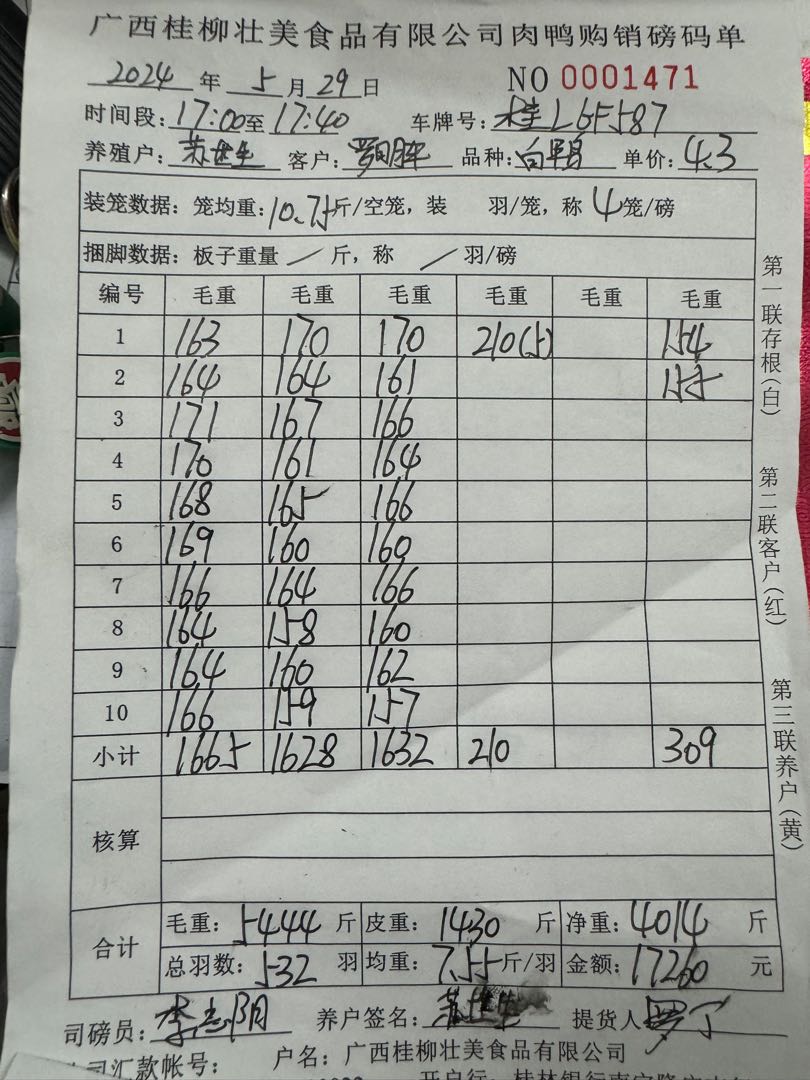 广西桂柳壮美食品有限公司肉鸭购销磅码单
2024 年 5 月 29 日 NO 0001471
时间段: 17:00 至 17:40 车牌号: 桂L6F587
养殖户: 苏世生 客户: 品种: 白 单价: 4.3
装笼数据: 笼均重: 10.75 斤/空笼, 装 羽/笼, 称 4 笼/磅
捆脚数据: 板子重量 / 斤, 称 / 羽/磅
编号 毛重 毛重 毛重 毛重 毛重 毛重
1 163 170 170 210(5) 154
2 164 164 161 155
3 171 167 166
4 170 161 164
5 168 165 166
6 169 160 160
7 166 164 166
8 164 158 160
9 164 160 162
10 166 159 157
小计 1665 1628 1632 210 309
核算
合计 毛重: 5444 斤 皮重: 1430 斤 净重: 4014 斤
总羽数: 532 羽 均重: 7.55 斤/羽 金额: 17260 元
司磅员: 李志阴 养户签名: 苏世生 提货人
公司汇款帐号: 户名: 广西桂柳壮美食品有限公司
开户行: 桂林银行南宁隆安
第一联存根(白)
第二联客户(红)
第三联养户(黄)